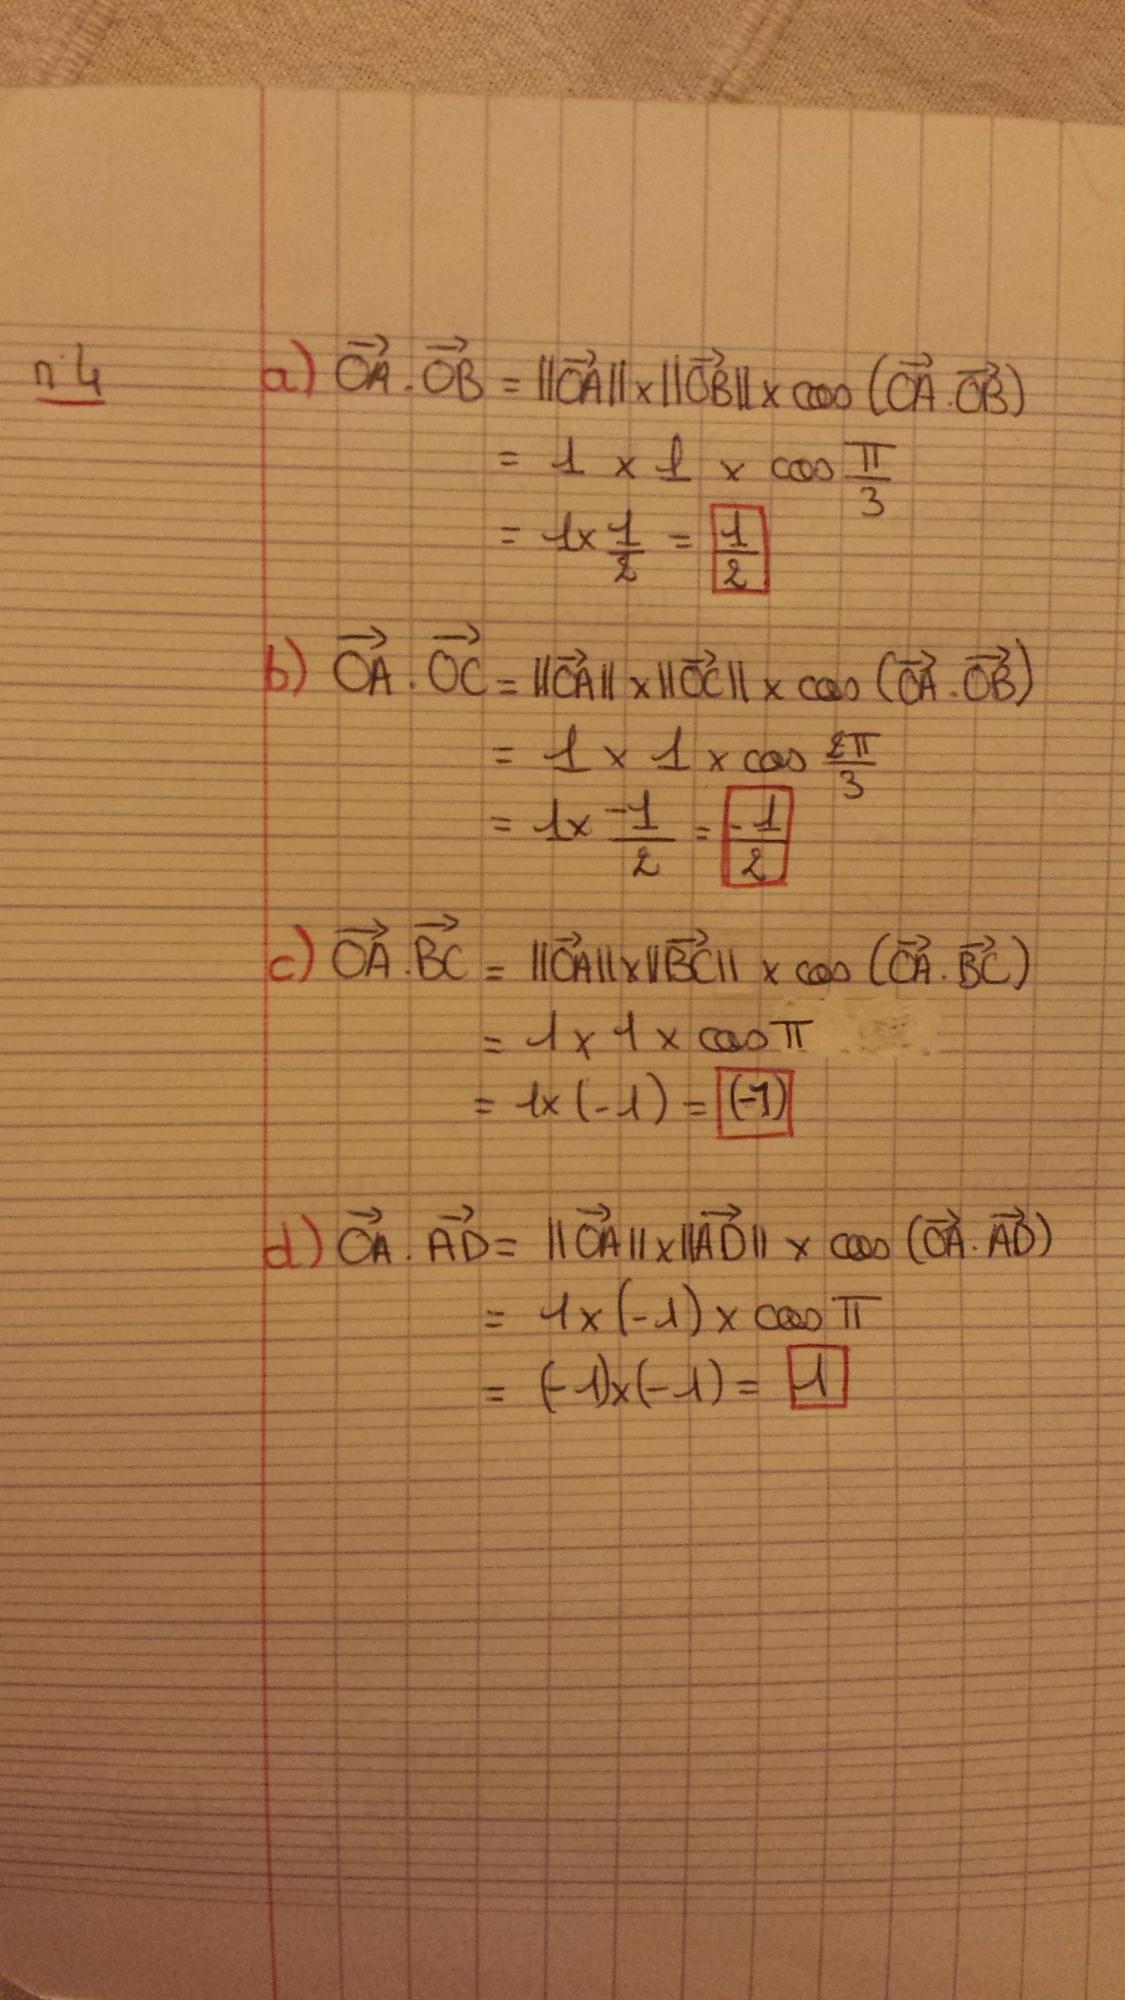 n°4 a) OA⃗ . OB⃗ = ||OA⃗|| x ||OB⃗|| x cos (OA⃗ . OB⃗)
= 1 x 1 x cos π/3
= 1 x 1/2 = 1/2
b) OA⃗ . OC⃗ = ||OA⃗|| x ||OC⃗|| x cos (OA⃗ . OB⃗)
= 1 x 1 x cos 2π/3
= 1 x -1/2 = -1/2
c) OA⃗ . BC⃗ = ||OA⃗|| x ||BC⃗|| x cos (OA⃗ . BC⃗)
= 1 x 1 x cos π
= 1 x (-1) = (-1)
d) OA⃗ . AD⃗ = ||OA⃗|| x ||AD⃗|| x cos (OA⃗ . AD⃗)
= 1 x (-1) x cos π
= (-1) x (-1) = 1